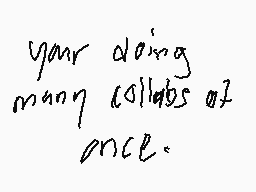 your doing
many collabs at
once.